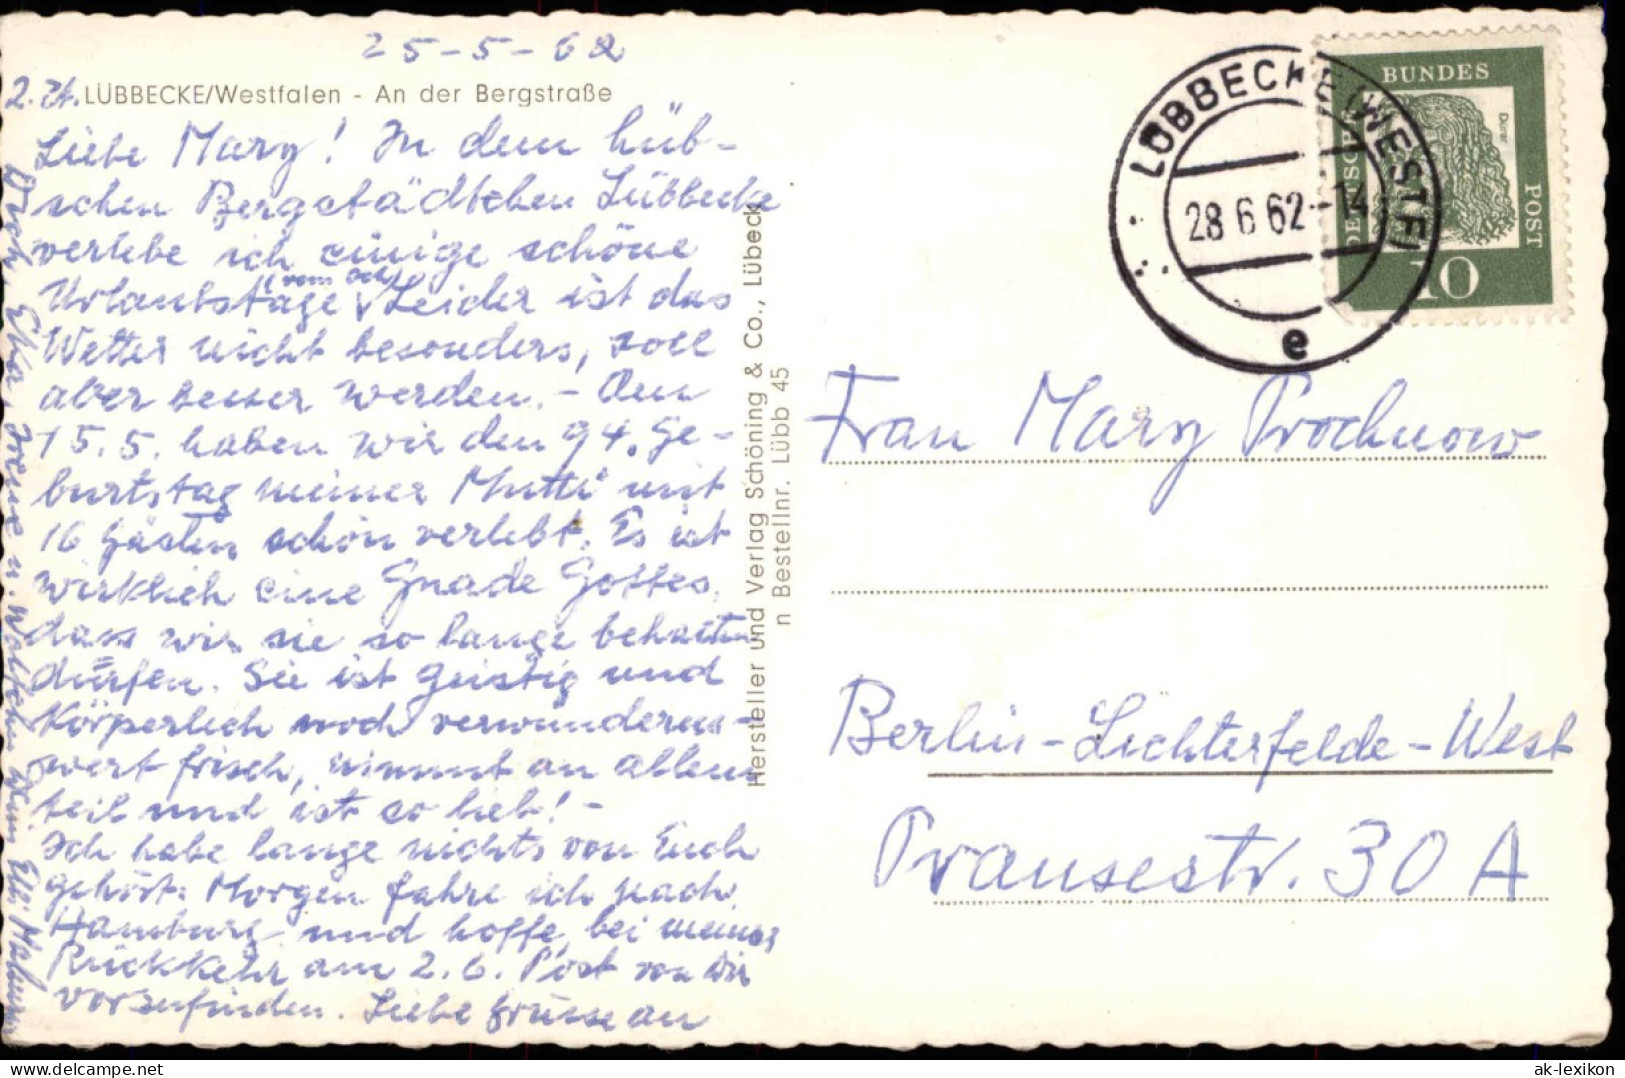 25-5-62
z. Zt. LÜBBECKE/Westfalen - An der Bergstraße
Liebe Mary! In dem hüb-
schen Bergstädtchen Lübbecke
verlebe ich einige schöne
Urlaubstage. Leider ist das
Wetter nicht besonders, soll
aber besser werden. - Am
15.5. haben wir den 94. Ge-
burtstag meiner Mutti mit
16 Gästen schön verlebt. Es ist
wirklich eine Gnade Gottes,
dass wir sie so lange behalten
dürfen. Sie ist geistig und
körperlich noch verwunderns-
wert frisch, nimmt an allem
teil und ist so lieb! -
Ich habe lange nichts von Euch
gehört. Morgen fahre ich nach
Hamburg und hoffe, bei meiner
Rückkehr am 2.6. Post von Dir
vorzufinden. Liebe Grüsse an
Dich, u. Dein
Hersteller und Verlag Schöning & Co., Lübeck
n Bestellnr. Lübb 45
LÜBBECKE (WESTF)
28.6.62-14
e
DEUTSCHE
BUNDES
POST
Dürer
10
Frau Mary Prochnow
Berlin-Lichterfelde-West
Pransestr. 30 A
ak-lexikon